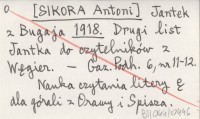 0 [SIKORA Antoni] Jantek
z Bugaja 1918. Drugi list
Jantka do czytelników z
Węgier. — Gaz. Podh. 6, nr 11-12.
Nauka czytania litery ę
dla górali z Orawy i Spisza.